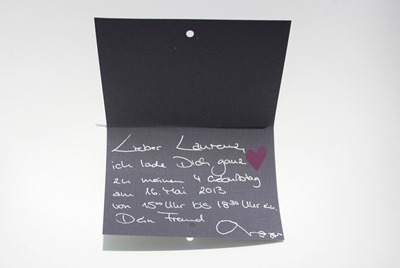 Lieber Laurenz,
ich lade Dich ganz
zu meinem 4 Geburtstag
am 16. Mai 2013
von 15⁰⁰ Uhr bis 18³⁰ Uhr ein
Dein Freund